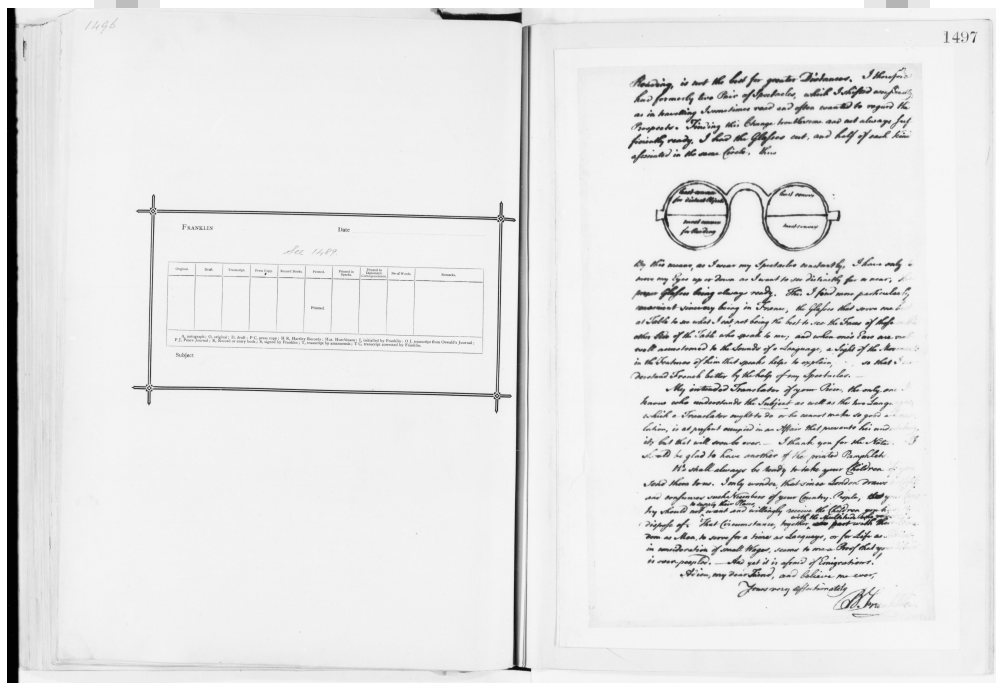 1496
FRANKLIN
Date
See 1489.
Original. Draft. Transcript. Press Copy. Record Books. Printed. Printed in Sparks. Printed in Diplomatic Correspondence. No. of Words. Remarks.
Printed.
Subject
1497
Reading, is not the best for greater Distances. I therefore
had formerly two Pair of Spectacles, which I shifted occasionally,
as in travelling I sometimes read and often wanted to regard the
Prospects. Finding this Change troublesome and not always suf
ficiently ready, I had the Glasses cut, and half of each kind
associated in the same Circle, thus
least convex
for distant Objects
most convex
for Reading
least convex
most convex
By this means, as I wear my Spectacles constantly, I have only
move my Eyes up or down as I want to see distinctly far or near,
proper Glasses being always ready. This I find more particularly
convenient since my being in France, the Glasses that serve me
at Table to see what I eat, not being the best to see the Faces of those
other Side of the Table who speak to me; and when one's Ears are
well accustomed to the Sounds of a Language, a Sight of the
in the Features of him that speaks helps to explain, so that I
derstand French better by the help of my Spectacles.
My intended Translator of your Piece, the only one
know who understands the Subject as well as the two
which a Translator ought to do or he cannot make so good a
lation, is at present occupied in an Affair that prevents his
it; but that will soon be over. I thank you for the Notes.
should be glad to have another of the printed Pamphlets
We shall always be ready to take your Children
send them to us. I only wonder, that since London draws
and consumes such Numbers of your Country People,
to supply their Places,
try should not want and willingly receive the Children you
with the Multitude
dispose of. That Circumstance, together, part with
dom as Men, to serve for a time as Lacqueys, or for Life as
in consideration of small Wages, seems to me a Proof that
is over-peopled. And yet it is afraid of Emigrations!
Adieu, my dear Friend, and believe me ever,
Yours very affectionately